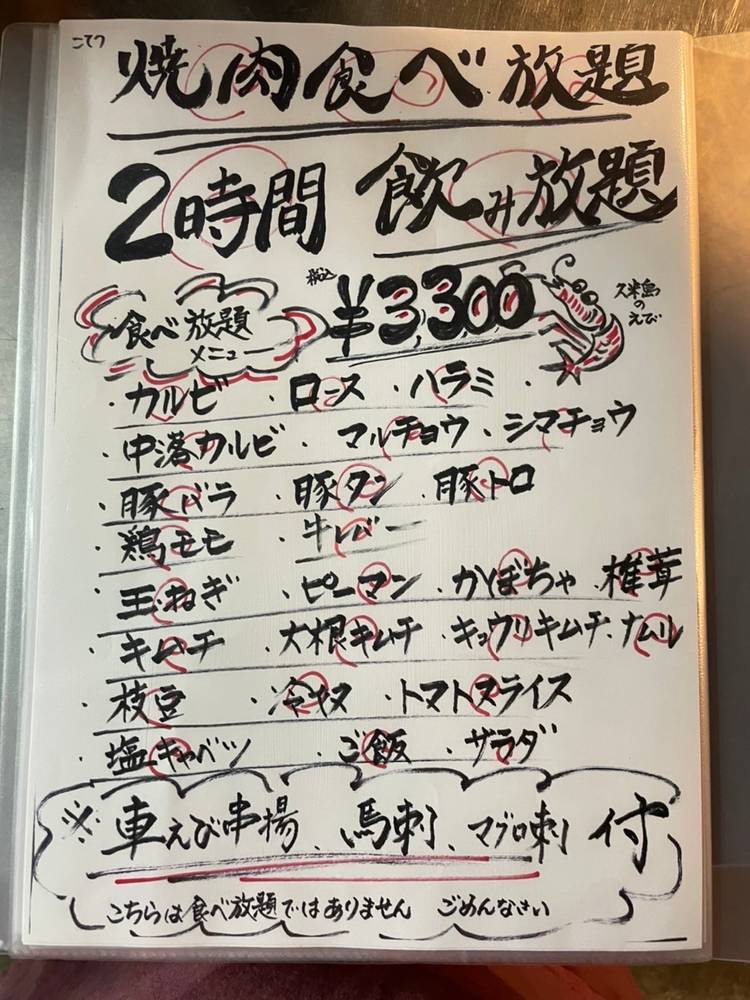 こてつ
焼肉食べ放題
2時間 飲み放題
税込 ¥3,300
久米島
の
えび
食べ放題
メニュー
・カルビ ・ロース ・ハラミ ・
・中落カルビ ・マルチョウ ・シマチョウ
・豚バラ ・豚タン ・豚トロ
・鶏モモ ・牛レバー
・玉ねぎ ・ピーマン ・かぼちゃ ・椎茸
・キムチ ・大根キムチ ・キュウリキムチ ・ナムル
・枝豆 ・冷ヤヌ ・トマトスライス
・塩キャベツ ・ご飯 ・サラダ
※車えび串揚、馬刺、マグロ刺 付
こちらは食べ放題ではありません ごめんなさい